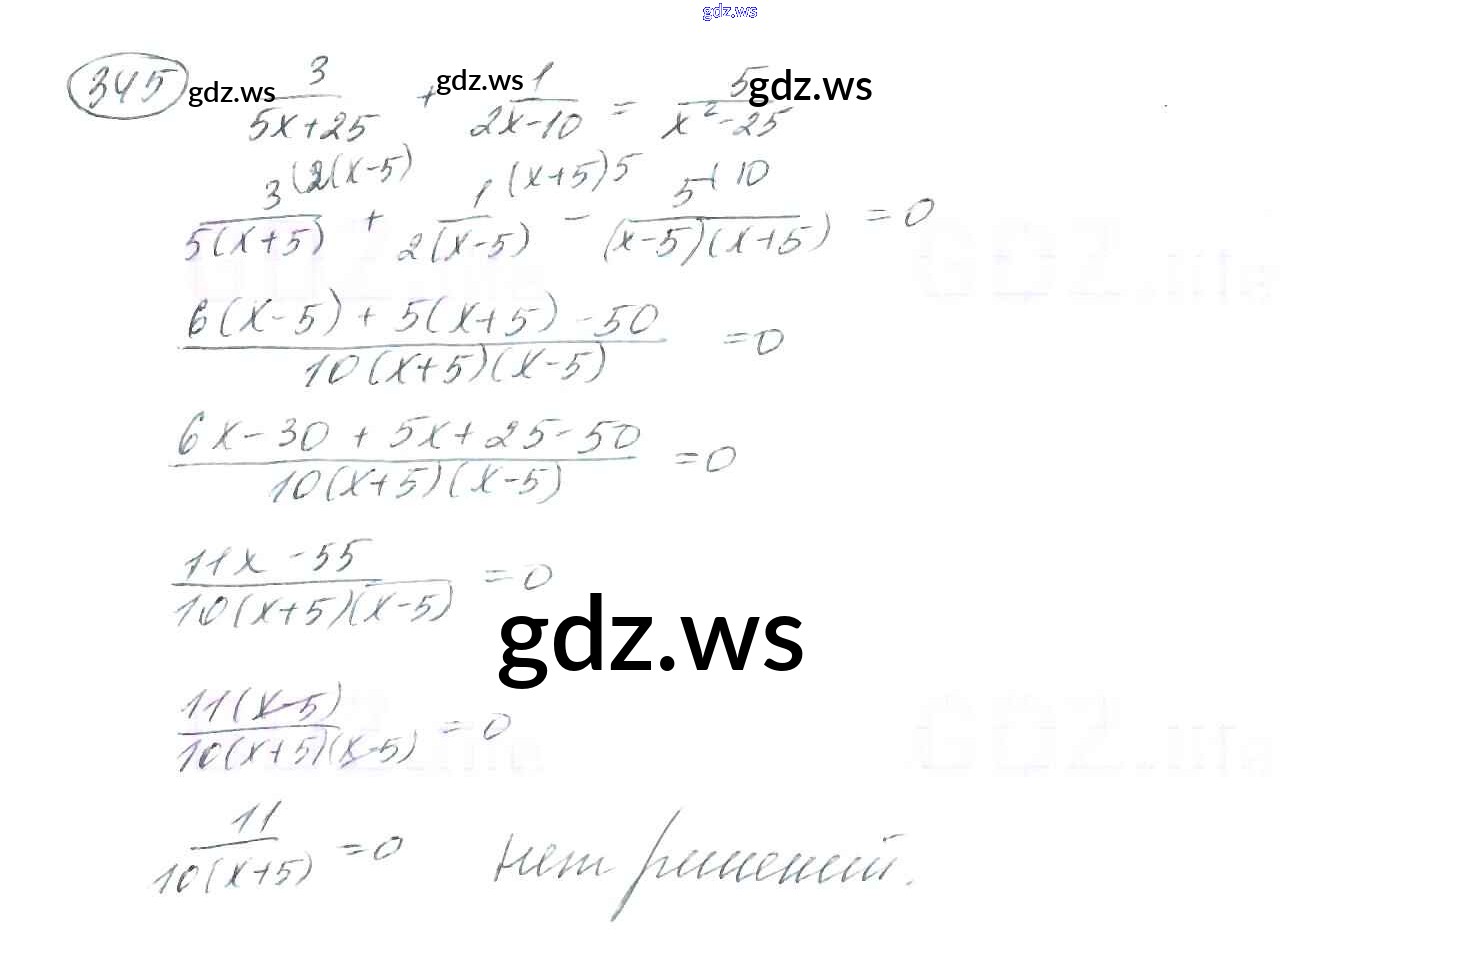 gdz.ws
345 gdz.ws 3/(5x+25) + gdz.ws 1/(2x-10) = 5/(x²-25) gdz.ws
3(2(x-5)/5(x+5) + 1(x+5)5/2(x-5) - 5(10/(x-5)(x+5) = 0
6(x-5) + 5(x+5) - 50/10(x+5)(x-5) = 0
6x - 30 + 5x + 25 - 50/10(x+5)(x-5) = 0
11x - 55/10(x+5)(x-5) = 0
gdz.ws
11(x-5)/10(x+5)(x-5) = 0
11/10(x+5) = 0 нет решений.